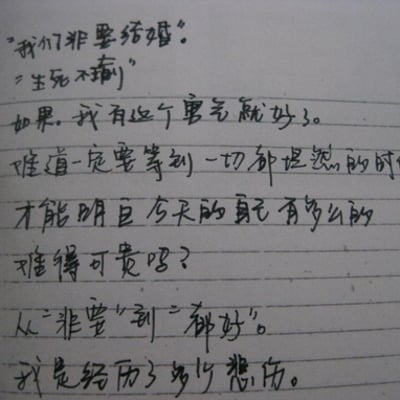 "我们非要结婚"。
"生死不离"
如果。我有这个勇气就好了。
难道一定要等到一切都坦然的时
才能明白今天的自己有多么的
难得可贵吗?
从"非要"到"都好"。
我是经历了多少悲伤。